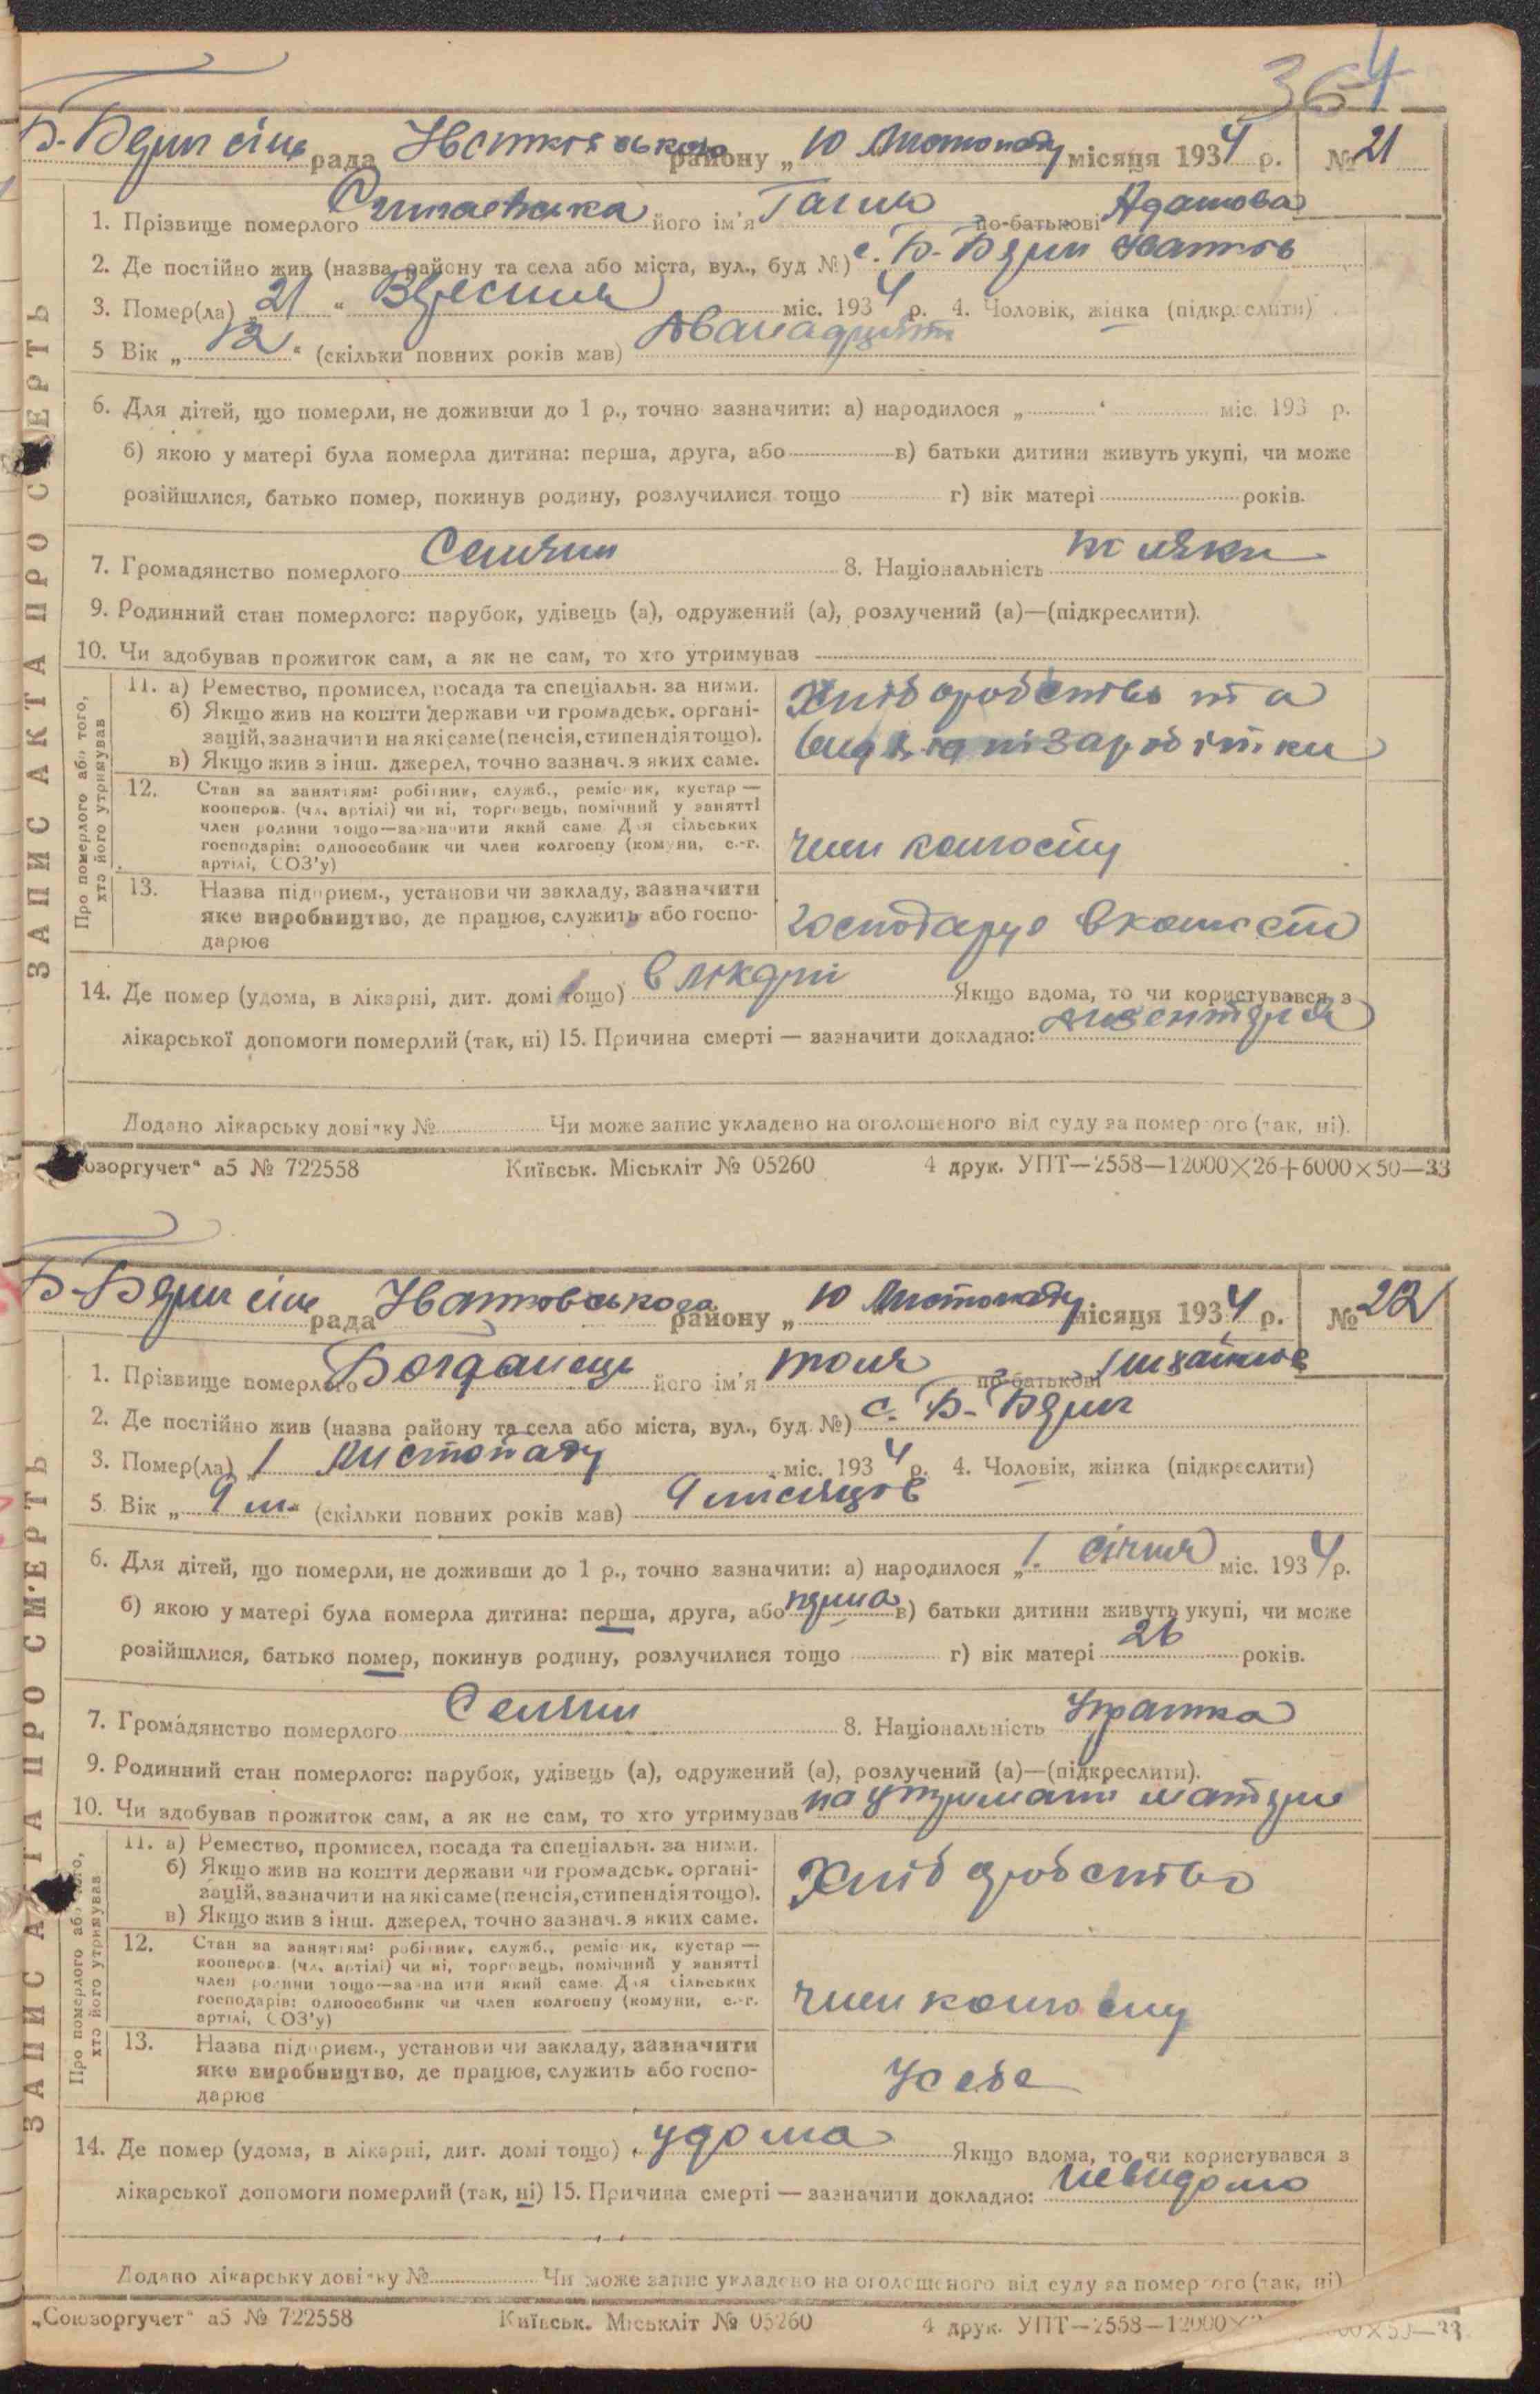 364
Б-Бярки сіль рада району „ 10 Листопаду місяця 1934 р. № 21
1. Прізвище померлого його ім'я по-батькові Адамова
2. Де постійно жив (назва району та села або міста, вул., буд №) с. Б-
3. Помер(ла) „ 21 “ Вересния міс. 1934 р. 4. Чоловік, жінка (підкреслити)
5 Вік „ 12 “ (скільки повних років мав) Дванадцять
6. Для дітей, що померли, не доживши до 1 р., точно зазначити: а) народилося „ “ міс. 193 р.
б) якою у матері була померла дитина: перша, друга, або в) батьки дитини живуть укупі, чи може
розійшлися, батько помер, покинув родину, розлучилися тощо г) вік матері років.
7. Громадянство померлого Селянин 8. Національність
9. Родинний стан померлого: парубок, удівець (а), одружений (а), розлучений (а)—(підкреслити).
10. Чи здобував прожиток сам, а як не сам, то хто утримував
ЗАПИС АКТА ПРО СМЕРТЬ
Про померлого або того,
хто його утримував
11. а) Ремество, промисел, посада та спеціальн. за ними.
б) Якщо жив на кошти держави чи громадськ. органі-
зацій, зазначити на які саме (пенсія, стипендія тощо).
в) Якщо жив з інш. джерел, точно зазнач. з яких саме.
Хліборобство та
заробітки
12. Стан за заняттям: робітник, служб., ремісник, кустар —
кооперов. (чл. артілі) чи ні, торговець, помічний у занятті
член родини тощо—зазначити який саме Для сільських
господарів: одноособник чи член колгоспу (комуни, с.-г.
артілі, СОЗ'у)
член колгоспу
13. Назва підприєм., установи чи закладу, зазначити
яке виробництво, де працює, служить або госпо-
дарює
господарує в колгоспі
14. Де помер (удома, в лікарні, дит. домі тощо) в лікарні Якщо вдома, то чи користувався з
лікарської допомоги померлий (так, ні) 15. Причина смерті — зазначити докладно: дизентерія
Додано лікарську довідку № Чи може запис укладено на оголошеного від суду за померлого (так, ні).
озоргучет“ а5 № 722558 Київськ. Міськліт № 05260 4 друк. УПТ—2558—12000×26+6000×50—33
Б-Бярки сіль рада району „ 10 Листопаду місяця 1934 р. № 22
1. Прізвище померлого Богданець його ім'я Толя по-батькові Михайлов
2. Де постійно жив (назва району та села або міста, вул., буд. №) с. Б-
3. Помер(ла) „ 1 Листопаду міс. 1934 р. 4. Чоловік, жінка (підкреслити)
5. Вік „ 9 м “ (скільки повних років мав) 9 місяцов
6. Для дітей, що померли, не доживши до 1 р., точно зазначити: а) народилося „ 1. січня міс. 1934 р.
б) якою у матері була померла дитина: перша, друга, або перша в) батьки дитини живуть укупі, чи може
розійшлися, батько помер, покинув родину, розлучилися тощо г) вік матері 26 років.
7. Громадянство померлого Селянин 8. Національність
9. Родинний стан померлого: парубок, удівець (а), одружений (а), розлучений (а)—(підкреслити).
10. Чи здобував прожиток сам, а як не сам, то хто утримував на утриманні матери
ЗАПИС АКТА ПРО СМЕРТЬ
Про померлого або того,
хто його утримував
11. а) Ремество, промисел, посада та спеціальн. за ними.
б) Якщо жив на кошти держави чи громадськ. органі-
зацій, зазначити на які саме (пенсія, стипендія тощо).
в) Якщо жив з інш. джерел, точно зазнач. з яких саме.
Хліборобство
12. Стан за заняттям: робітник, служб., ремісник, кустар —
кооперов. (чл. артілі) чи ні, торговець, помічний у занятті
член родини тощо—зазначити який саме Для сільських
господарів: одноособник чи член колгоспу (комуни, с.-г.
артілі, СОЗ'у)
член колгоспу
13. Назва підприєм., установи чи закладу, зазначити
яке виробництво, де працює, служить або госпо-
дарює
У себе
14. Де помер (удома, в лікарні, дит. домі тощо) удома Якщо вдома, то чи користувався з
лікарської допомоги померлий (так, ні) 15. Причина смерті — зазначити докладно: невидомо
Додано лікарську довідку № Чи може запис укладено на оголошеного від суду за померлого (так, ні)
„Союзоргучет“ а5 № 722558 Київськ. Міськліт № 05260 4 друк. УПТ—2558—12000× 00×50—33